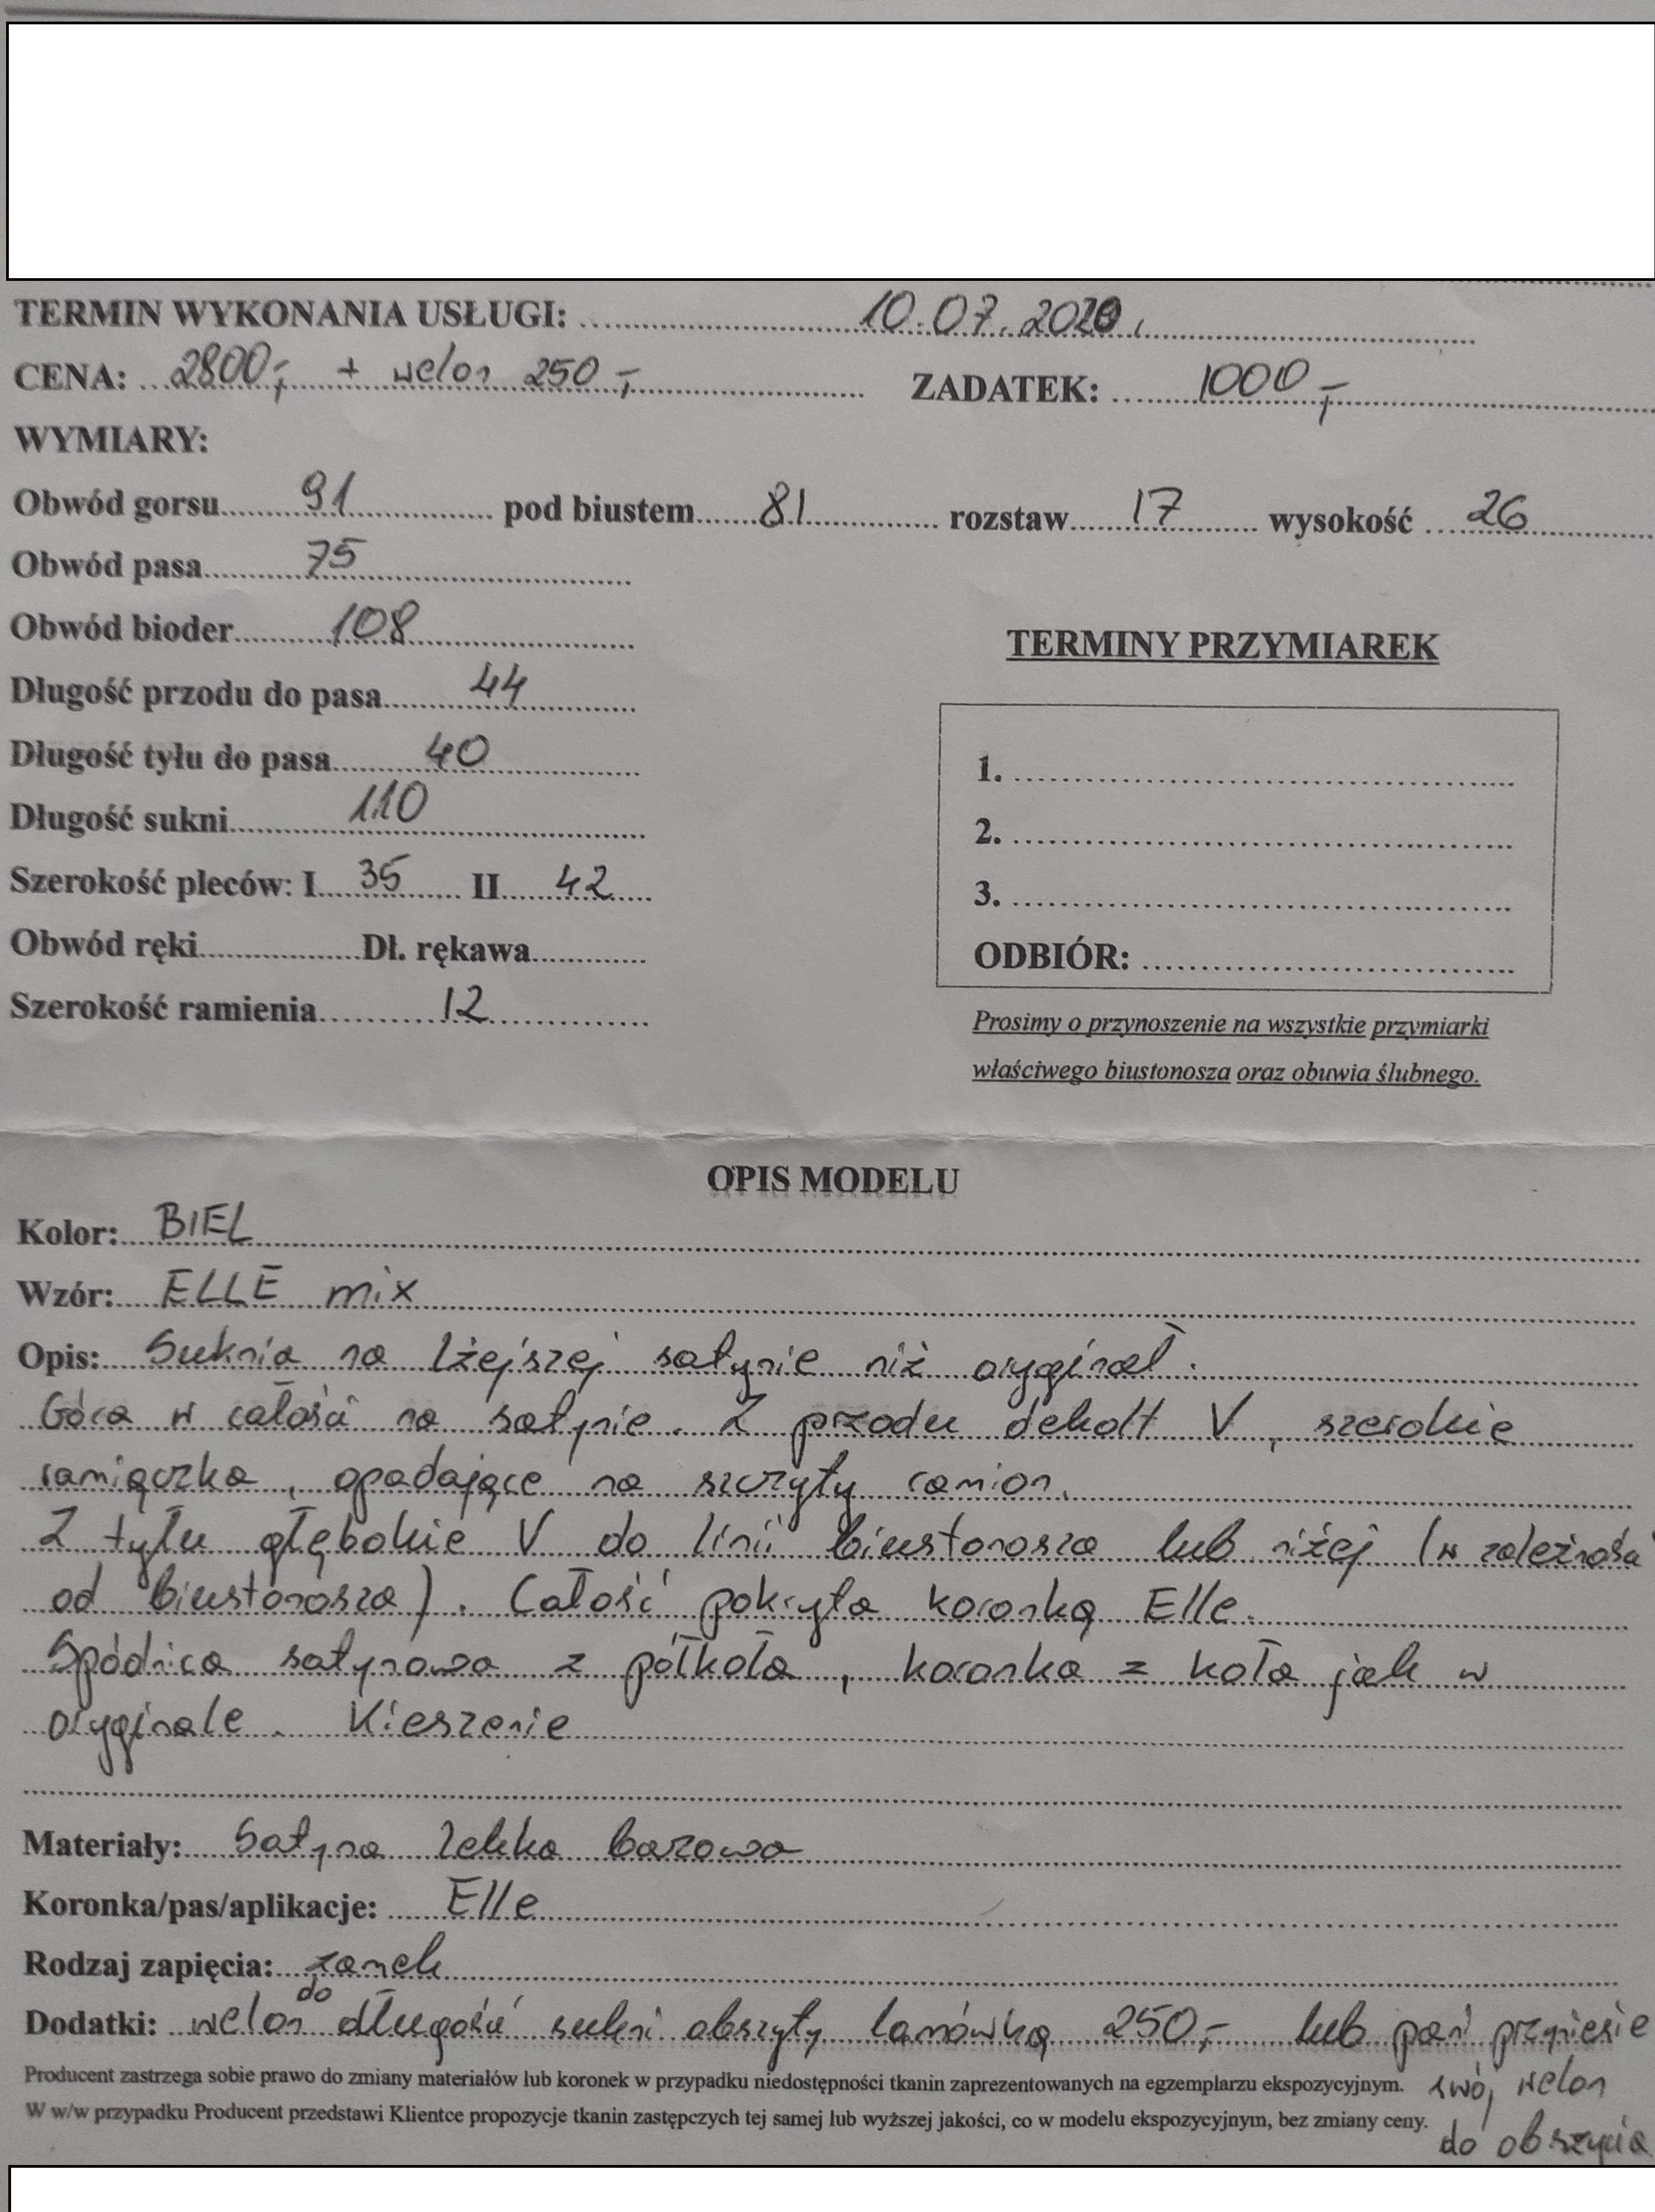 TERMIN WYKONANIA USŁUGI: 10.07.2020
CENA: 2800,- + welon 250,- ZADATEK: 1000,-
WYMIARY:
Obwód gorsu 91 pod biustem 81 rozstaw 17 wysokość 26
Obwód pasa 75
Obwód bioder 108
Długość przodu do pasa 44
Długość tyłu do pasa 40
Długość sukni 110
Szerokość pleców: I 35 II 42
Obwód ręki Dł. rękawa
Szerokość ramienia 12
TERMINY PRZYMIAREK
1.
2.
3.
ODBIÓR:
Prosimy o przynoszenie na wszystkie przymiarki
właściwego biustonosza oraz obuwia ślubnego.
OPIS MODELU
Kolor: BIEL
Wzór: ELLE mix
Opis: Suknia na lżejszej satynie niż oryginał.
Góra w całości na satynie. Z przodu dekolt V, szerokie
ramiączka, opadające na szczyty ramion.
Z tyłu głębokie V do linii biustonosza lub niżej (w zależności
od biustonosza). Całość pokryta koronką Elle.
Spódnica satynowa z półkola, koronka z koła jak w
oryginale. Kieszenie
Materiały: Satyna lekka bazowa
Koronka/pas/aplikacje: Elle
Rodzaj zapięcia: zamek
Dodatki: welon do długości sukni obszyty lamówką 250,- lub pani przyniesie
swój welon
do obszycia
Producent zastrzega sobie prawo do zmiany materiałów lub koronek w przypadku niedostępności tkanin zaprezentowanych na egzemplarzu ekspozycyjnym.
W w/w przypadku Producent przedstawi Klientce propozycje tkanin zastępczych tej samej lub wyższej jakości, co w modelu ekspozycyjnym, bez zmiany ceny.